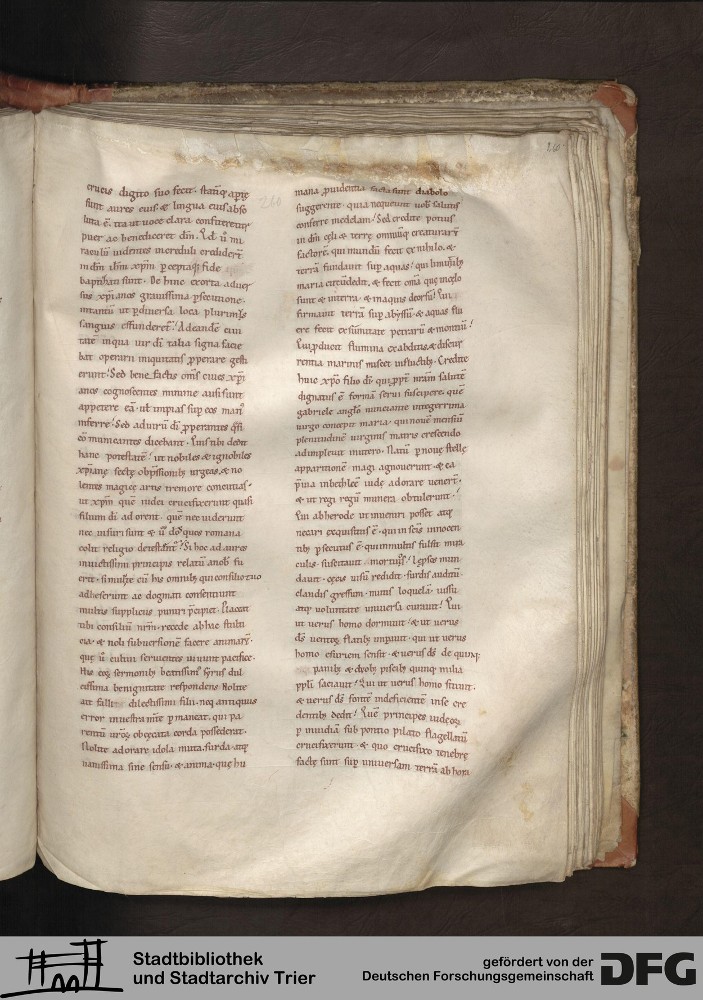 260
crucis digito suo fecit. statīq; aptę
sunt aures eius & lingua eius abso
luta ē. ita ut uoce clara confiteretur
puer ac benediceret dm̄. Qd ū mi
raculū uidentes increduli crediderт̄
in dn̄m ihm̄ xp̄m. pceptaq; fide
baptizati sunt. De hinc exorta aduer
sus xp̄ianos grauissima p̄secutione.
ut pdiuersa loca plurimus
sanguis effunderet. Ad eandē ciui
tatē in qua uir dī talia signa facie
bat operarii iniquitatis pperare gesti
erunt. Sed bene factis oms̄ ciues xp̄i
anos cognoscentes minime ausi sunt
appetere eā. ul impias sup eos man9
inferre. Sed aduirū dī pperantes q̄si
cō municantes dicebant. Quis tibi dedit
hanc potestatē. ut nobiles & ignobiles
xp̄ianę sectę obpssionib; urgeas. & no
lentes magicę artis tremore concutias.
ut xp̄m quē iudei crucifixerunt quasi
filium dī adorent. quē nec uiderunt
nec uisuri sunt & ū dos ques romana
colit religio detestant. Si hoc ad aures
inuictissimi principis relatū a nob fu
erit. simulte cū his omnib; qui consilio tuo
adheserunt ac dogmati consentiunt
multis suppliciis puniri pcipiet. Placeat
tibi consiliū nr̄m. recede ab hac stulti
cia. & noli subuersionē facere animarū.
quę ū cultui seruientes uiuunt pacifice.
His eoꝝ sermonib; beatissim9 syrus dul
cissima benignitate respondens. Nolite
ait falli dilectissimi filii. neq; antiquus
error in uestra mīte pmaneat. qui pa
rentū urōꝝ obcęcata corda possederat.
Nolite adorare idola muta. surda. atq;
uanissima sine sensu. & anima. quę hu
260
mana puidentia facta sunt diabolo
suggerente. quia nequeunt uob salutis
conferre medelam. Sed credite potius
in dm̄ cęli & terrę omniūq; creaturarū
factorē. qui mundū fecit ex nihilo. &
terrā fundauit sup aquas. qui limitib;
maria circūdedit. & fecit omā quę incęlo
sunt & interra. & in aquis deorsū. Qui
firmauit terrā sup abyssū. & aquas flu
ere fecit ex sūmitate petrarū & montiū.
Qui pducit flumina ex abditis. & discur
rentia marinis miscet in fluctib;. Credite
huic xp̄o filio dī qui ppt nr̄am salutē
dignatus ē formā serui suscipere. quē
gabriele anglo nunciante integerrima
uirgo concepit maria. qui nouē mensiū
plenitudinē uirginis matris crescendo
adimpleuit inutero. Natū p nouę stellę
apparitionē magi agnouerunt. & ea
pūia inbethleē iudę adorare uenerт̄.
& ut regi regū munera obtulerunt.
Qui ab herode ut inueniri posset atq;
necari exquisitus ē. qui in scīs innocen
tib; psecutus ē. qui in multis fulsit mira
culis. suscitauit mortuos. Lepsos mun
dauit. cęcis uisū reddidit. surdis auditū.
claudis gressum. mutis loquelā. iussu
atq; uoluntate uniuersa curauit. Qui
ut uerus homo dormiuit. & ut uerus
ds̄ uentos flatib; impauit. qui ut uerus
homo esuriem sensit. & uerus ds̄ de quinq;
panib; & duob; piscib; quinq; milia
pplī saciauit. Qui ut uerus homo sitiuit.
& uerus ds̄ fontē indeficientē inse cre
dentib; dedit. Quē principes iudeoꝝ
p inuidiā sub pontio pilato flagellatū
crucifixerunt. & quo crucifixo tenebrę
factę sunt sup uniuersam terrā ab hora
Stadtbibliothek
und Stadtarchiv Trier
gefördert von der
Deutschen Forschungsgemeinschaft
DFG